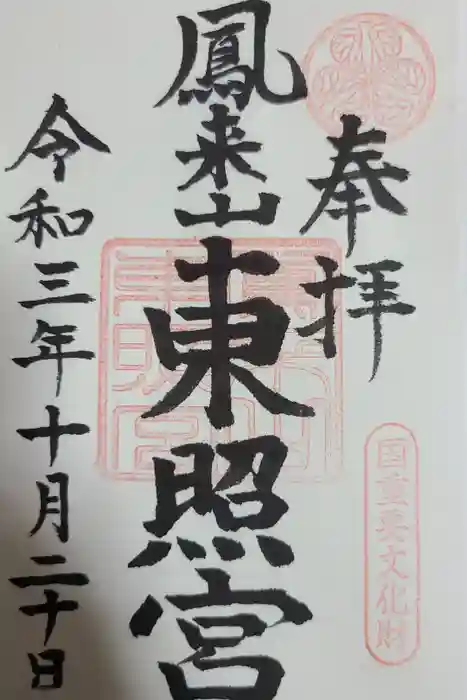 奉拝
国重要文化財
鳳来山東照宮
令和三年十月二十日